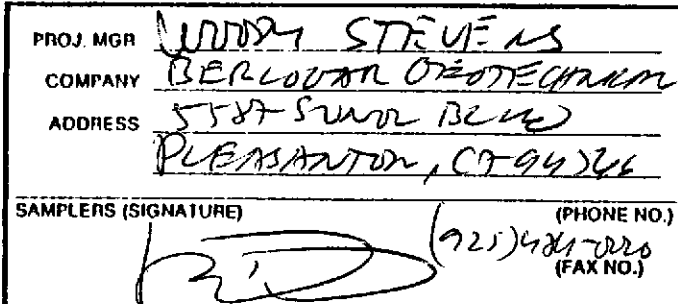 PROJ. MGR WOODY STEVENS
COMPANY BERLOGAR GEOTECHNICAL
ADDRESS 5587 SUNOL BLVD
PLEASANTON, CA 94566
SAMPLERS (SIGNATURE) (PHONE NO.)
(925)
(FAX NO.)